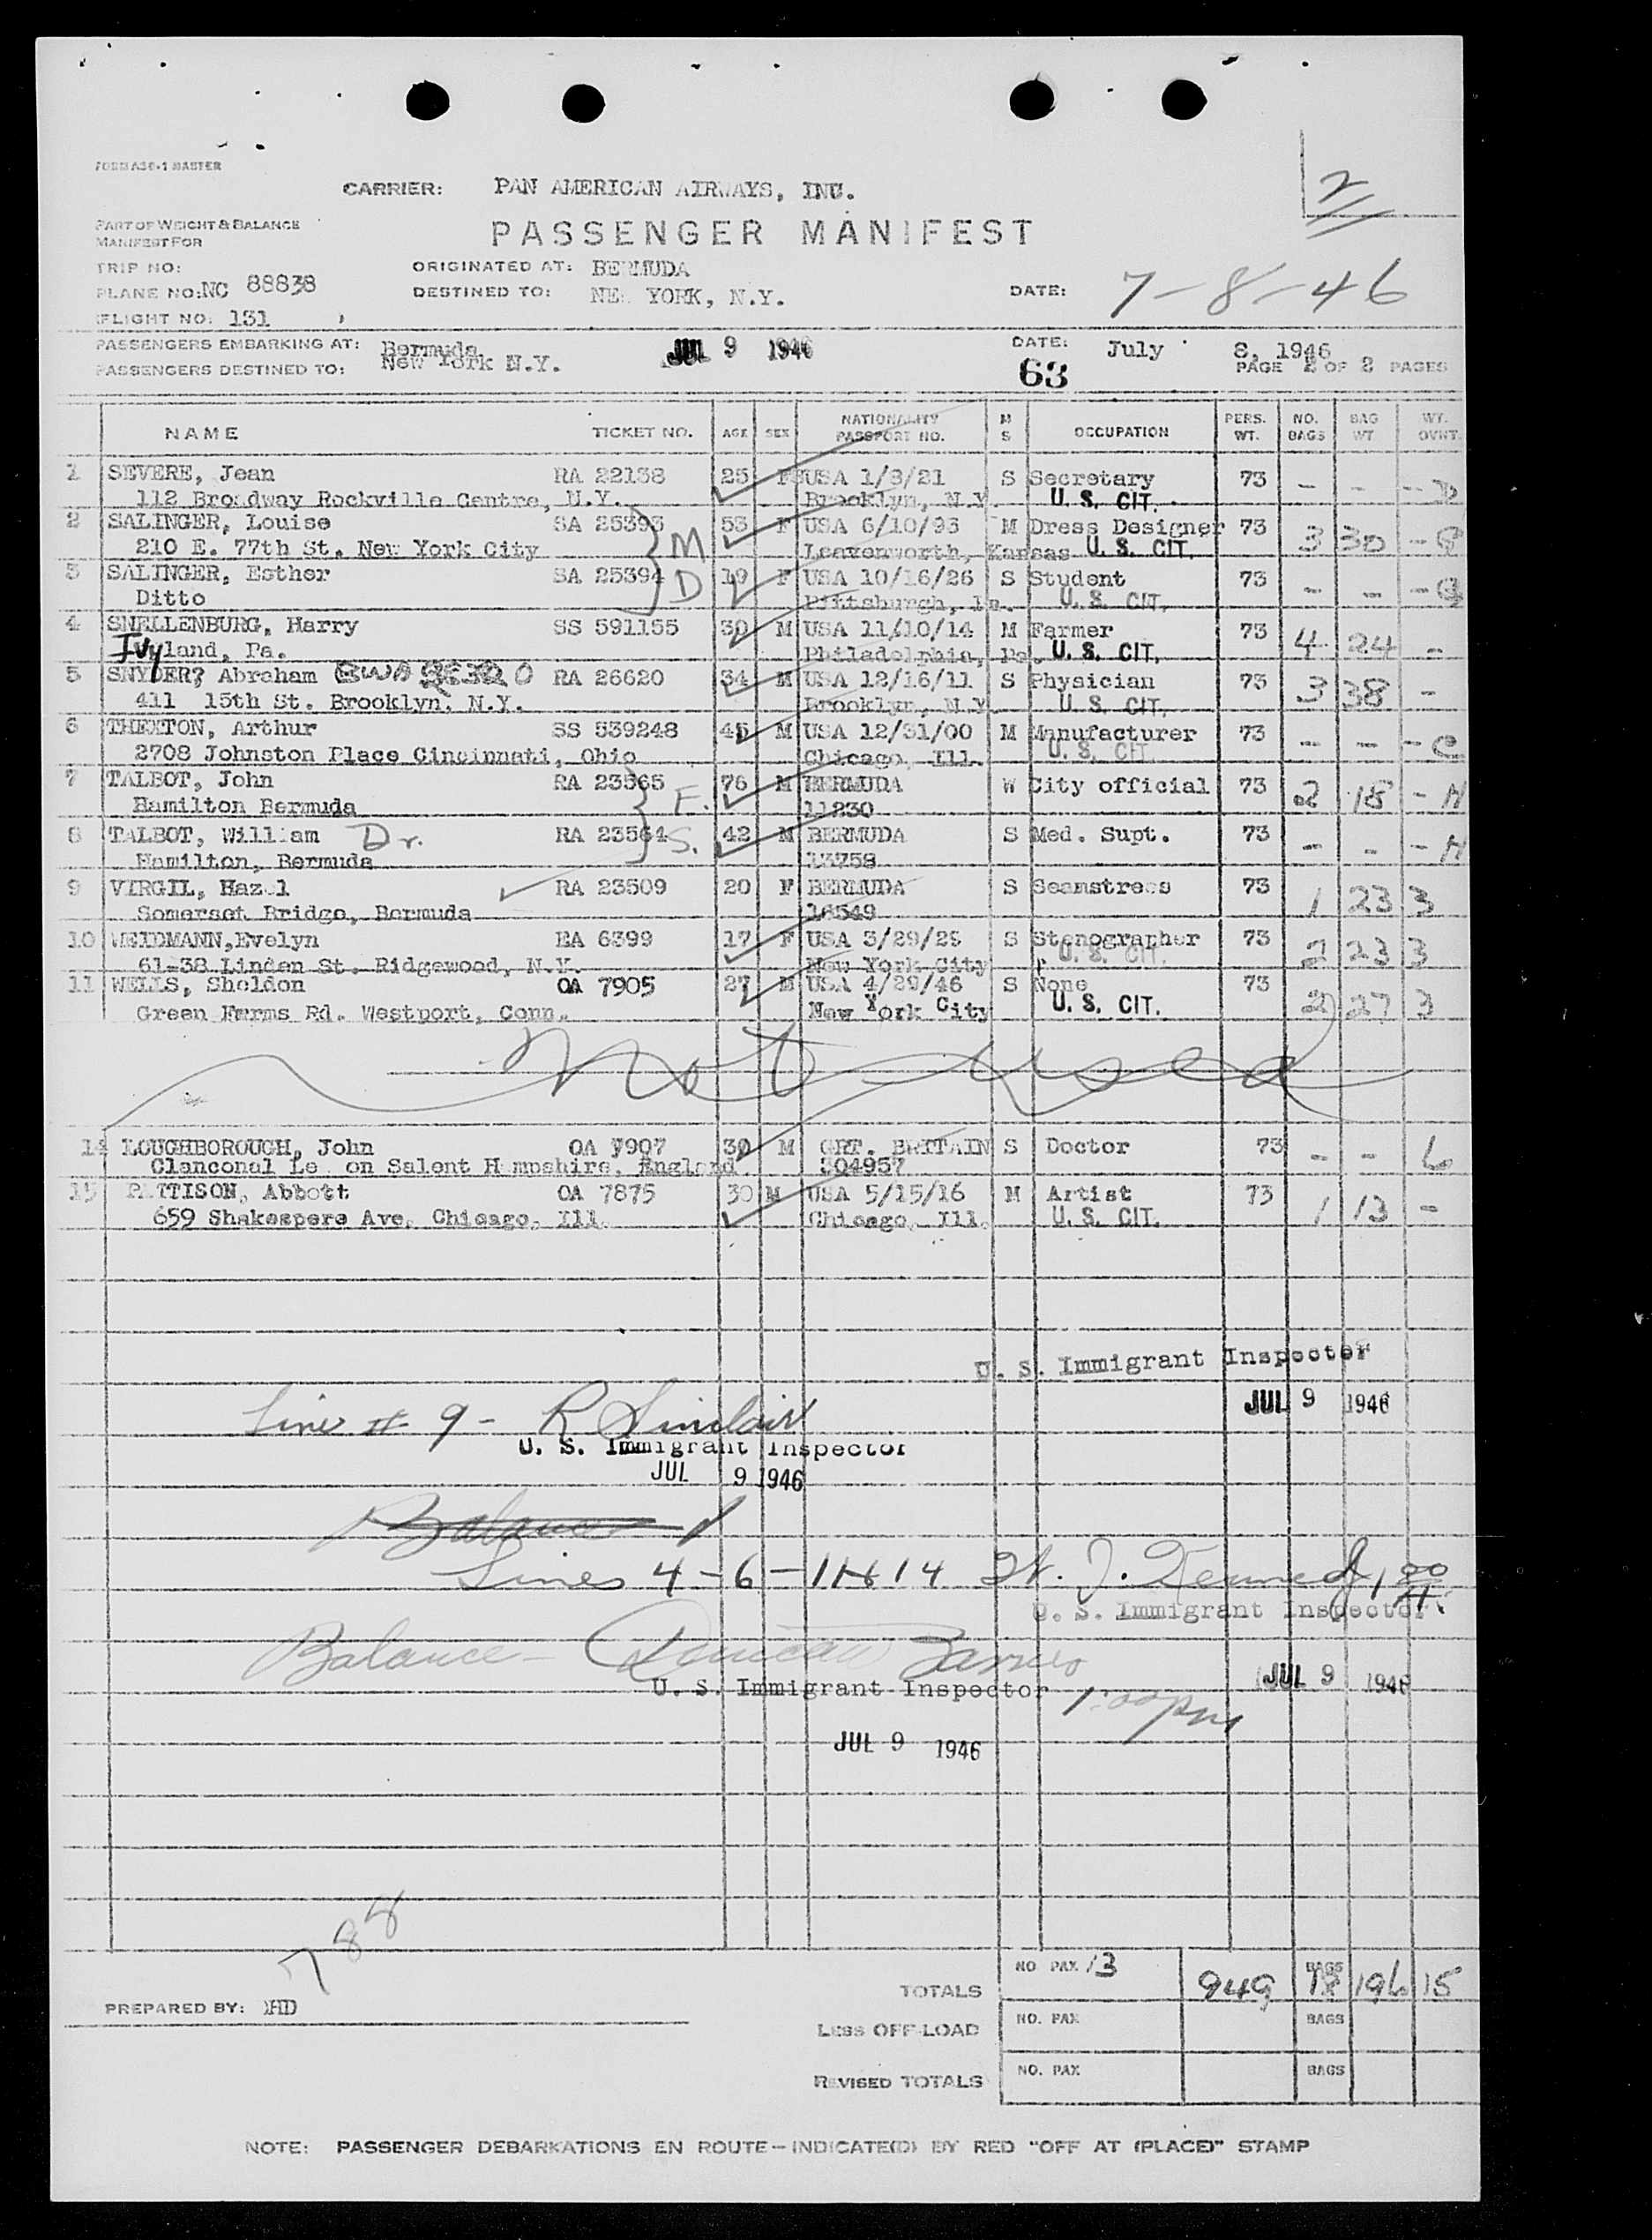 FORM A30-1 MASTER
CARRIER: PAN AMERICAN AIRWAYS, INC.
2
PART OF WEIGHT & BALANCE
MANIFEST FOR
PASSENGER MANIFEST
TRIP NO:
ORIGINATED AT: BERMUDA
PLANE NO: NC 88838
DESTINED TO: NEW YORK, N.Y.
DATE: 7-8-46
FLIGHT NO: 131
PASSENGERS EMBARKING AT: Bermuda
JUL 9 1946
DATE: July 8, 1946
PASSENGERS DESTINED TO: New York N.Y.
63
PAGE 2 OF 2 PAGES
NAME TICKET NO. AGE SEX NATIONALITY PASSPORT NO. M S OCCUPATION PERS. WT. NO. BAGS BAG WT WT. OVWT.
1 SEVERE, Jean RA 22138 25 F USA 1/8/21 S Secretary 73 - - -
112 Broadway Rockville Centre, N.Y. Brooklyn, N.Y. U. S. CIT.
2 SALINGER, Louise SA 25393 M 53 F USA 6/10/93 M Dress Designer 73 3 30 -
210 E. 77th St. New York City Leavenworth, Kansas U. S. CIT.
3 SALINGER, Esther SA 25394 D 19 F USA 10/16/26 S Student 73 - - -
Ditto Pittsburgh, Pa. U. S. CIT.
4 SNELLENBURG, Harry SS 591155 30 M USA 11/10/14 M Farmer 73 4 24 -
Ivyland, Pa. Philadelphia, Pa. U. S. CIT.
5 SNYDER, Abraham RA 26620 34 M USA 12/16/11 S Physician 73 3 38 -
411 15th St. Brooklyn, N.Y. Brooklyn, N.Y. U. S. CIT.
6 THEXTON, Arthur SS 539248 45 M USA 12/31/00 M Manufacturer 73 - - - C
2708 Johnston Place Cincinnati, Ohio Chicago, Ill. U. S. CIT
7 TALBOT, John RA 23565 F. 76 M BERMUDA W City official 73 2 18 - H
Hamilton Bermuda 11230
8 TALBOT, William Dr. RA 23564 S. 42 M BERMUDA S Med. Supt. 73 - - - H
Hamilton, Bermuda 13758
9 VIRGIL, Hazel RA 23509 20 F BERMUDA S Seamstress 73 1 23 3
Somerset Bridge, Bermuda 16549
10 WEIDMANN, Evelyn EA 6399 17 F USA 3/29/29 S Stenographer 73 2 23 3
61-38 Linden St. Ridgewood, N.Y. New York City U. S. CIT.
11 WELLS, Sheldon OA 7905 27 M USA 4/29/46 S None 73 2 27 3
Green Farms Rd. Westport, Conn. New York City U. S. CIT.
Not used
14 LOUGHBOROUGH, John OA 7907 30 M GRT. BRITAIN S Doctor 73 - - 6
on Salent Hampshire, England 304957
15 PATTISON, Abbott OA 7875 30 M USA 5/15/16 M Artist 73 1 13 -
659 Shakespere Ave. Chicago, Ill. Chicago, Ill. U. S. CIT.
U. S. Immigrant Inspector
JUL 9 1946
Line # 9 - R Sinclair
U. S. Immigrant Inspector
JUL 9 1946
Balance
Lines 4-6-11 14
U. S. Immigrant Inspector
Balance - Duncan
U. S. Immigrant Inspector
JUL 9 1946
1:00pm
JUL 9 1946
788
TOTALS NO PAX 13 949 BAGS 18 196 15
PREPARED BY: HD
LESS OFF-LOAD NO. PAX BAGS
REVISED TOTALS NO. PAX BAGS
NOTE: PASSENGER DEBARKATIONS EN ROUTE - INDICATE(D) BY RED "OFF AT (PLACE)" STAMP